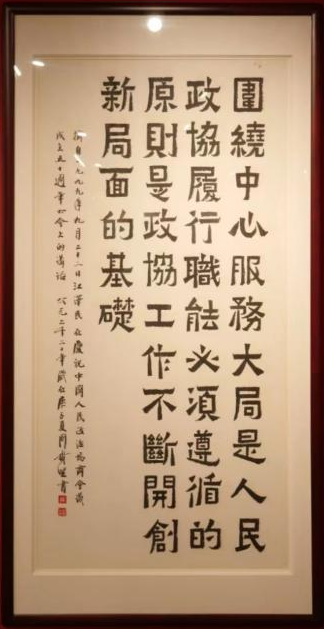 圍繞中心服務大局是人民
政協履行職能必須遵循的
原則是政協工作不斷開創
新局面的基礎
摘自一九九九年九月二十二日江澤民在慶祝中國人民政治協商會議
成立五十週年大會上的講話 公元二千二十年歲在庚子夏周